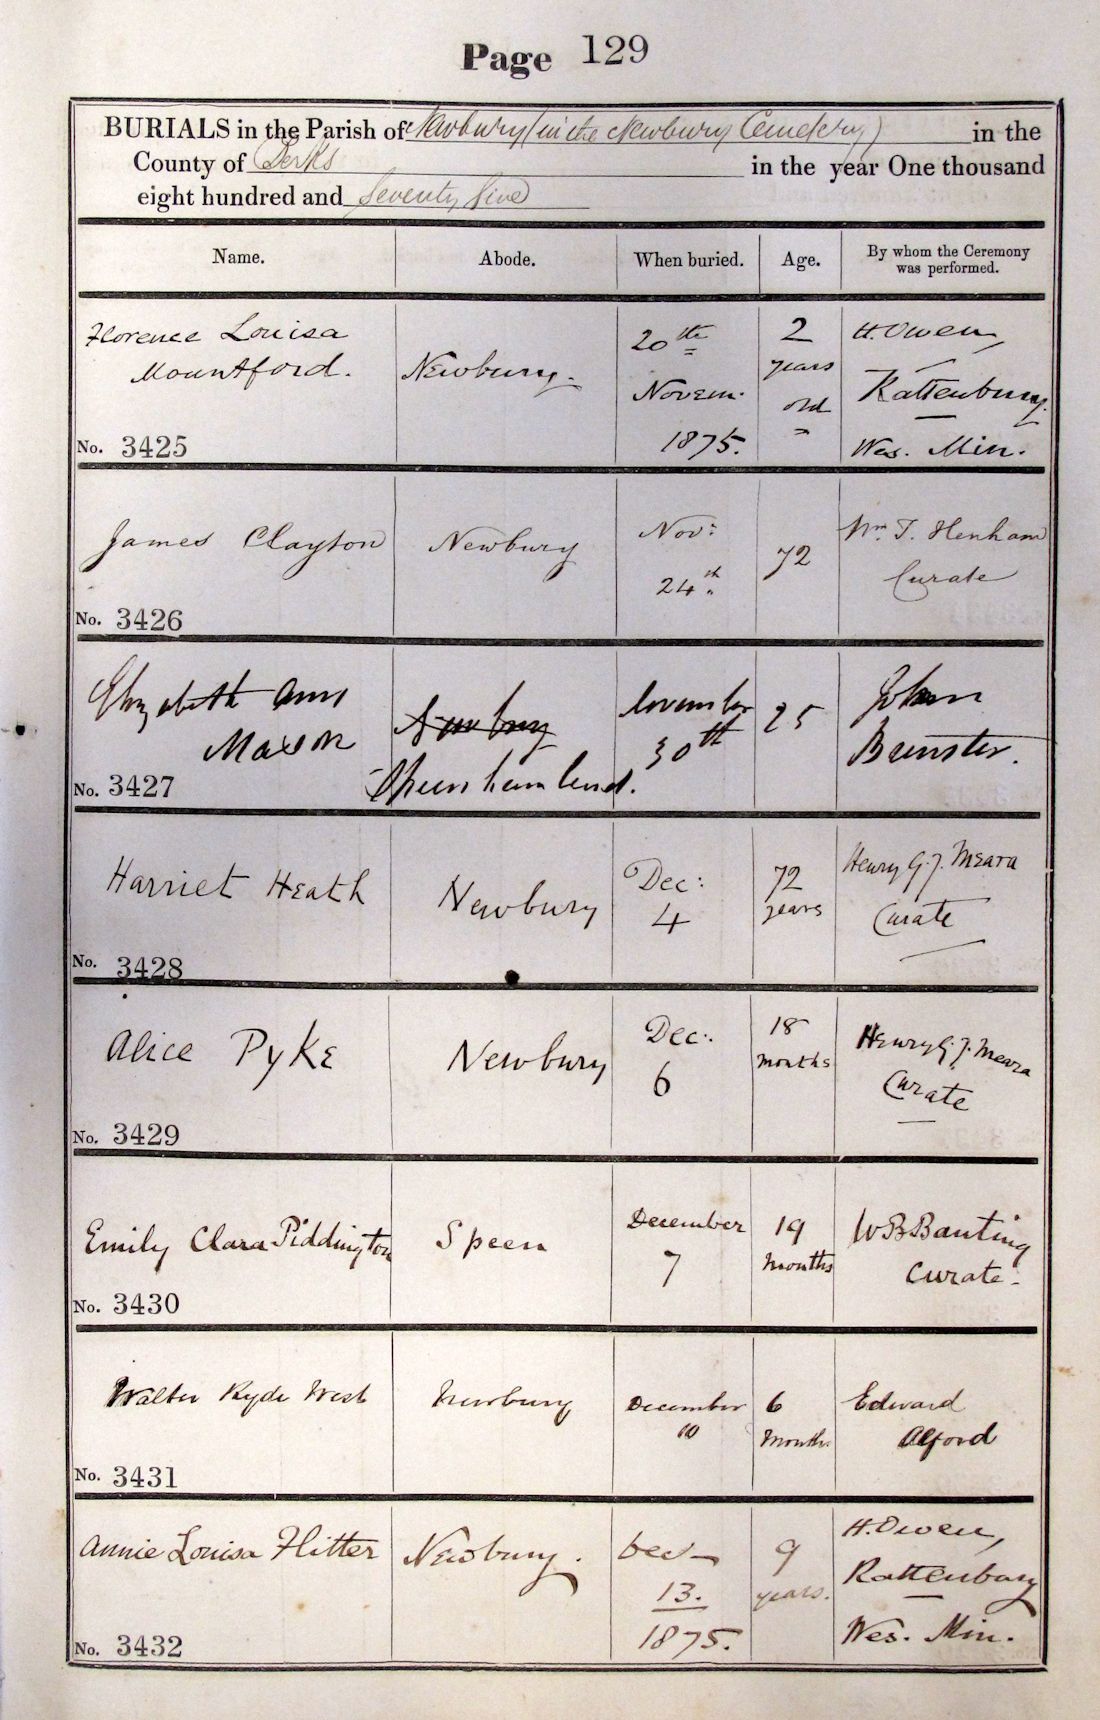 Page 129
BURIALS in the Parish of Newbury (in the Newbury Cemetery) in the
County of Berks in the year One thousand
eight hundred and seventy five
Name. Abode. When buried. Age. By whom the Ceremony was performed.
Florence Louisa
Mountford.
No. 3425
Newbury.
20th
Novem.
1875.
2
years
old
H. Owen,
Rattenbury.
Wes. Min.
James Clayton
No. 3426
Newbury
Nov:
24th.
72
Wm. T. Henham
Curate
Elizabeth Ann
Maxon
No. 3427
Newbury
November
30th
25
John
Brunster.
Harriet Heath
No. 3428
Newbury
Dec:
4
72
years
Henry G. J. Meara
Curate
Alice Pyke
No. 3429
Newbury
Dec:
6
18
months
Henry G. J. Meara
Curate
Emily Clara Piddington
No. 3430
Speen
December
7
19
months
W B Banting
Curate.
Walter Ryde West
No. 3431
Newbury
December
10
6
Months
Edward
Alford
Annie Louisa Flitter
No. 3432
Newbury.
Dec
13.
1875.
9
years.
H. Owen,
Rattenbury
Wes. Min.